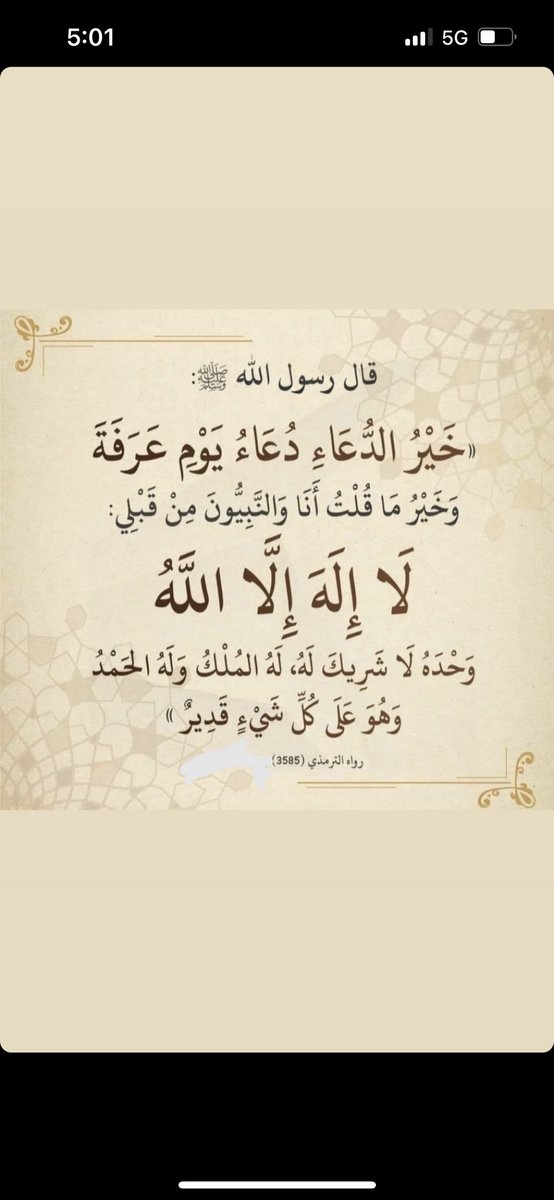 5:01
5G
قال رسول الله ﷺ:
«خَيْرُ الدُّعَاءِ دُعَاءُ يَوْمِ عَرَفَةَ
وَخَيْرُ مَا قُلْتُ أَنَا وَالنَّبِيُّونَ مِنْ قَبْلِي:
لَا إِلَهَ إِلَّا اللَّهُ
وَحْدَهُ لَا شَرِيكَ لَهُ، لَهُ المُلْكُ وَلَهُ الحَمْدُ
وَهُوَ عَلَى كُلِّ شَيْءٍ قَدِيرٌ»
رواه الترمذي (3585)